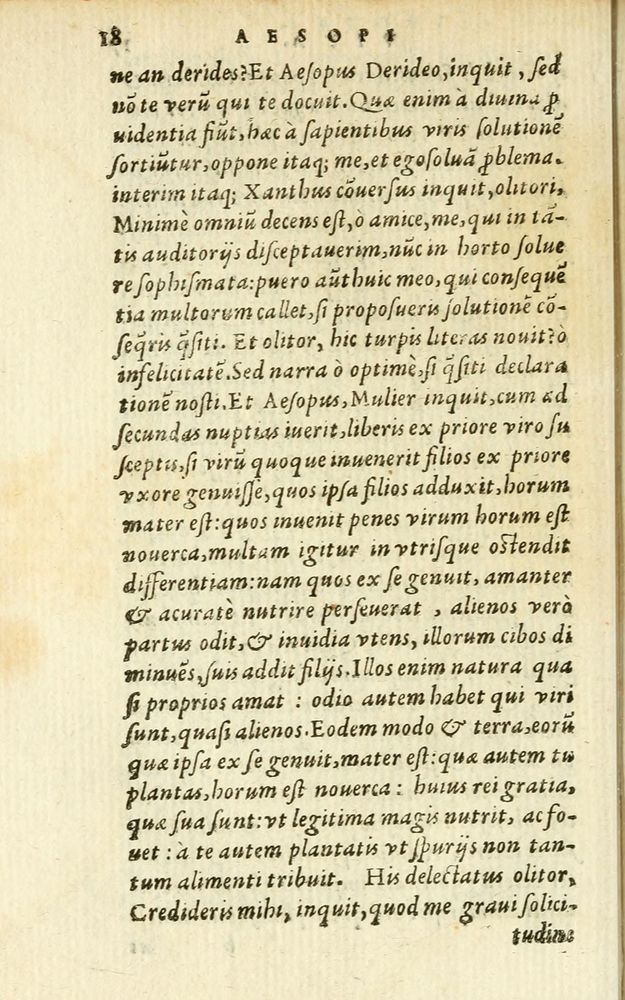 18 AESOPI
ne an derides? Et Aesopus Derideo, inquit, sed
nõ te verũ qui te docuit. Quæ enim à diuina ꝓ
uidentia fiũt, hæc à sapientibus viris solutionẽ
sortiũtur, oppone itaq; me, et ego soluã ꝓblema.
interim itaq; Xanthus cõuersus inquit, olitori,
Minimè omniũ decens est, ò amice, me, qui in tã-
tis auditorijs disceptauerim, nũc in horto solue
re sophismata: puero aũt huic meo, qui consequẽ
tia multorum callet, si proposueris solutionẽ cõ-
seq̃ris q̃siti. Et olitor, hic turpis literas nouit? ò
infelicitatẽ. Sed narra ò optimè, si q̃siti declara
tionẽ nosti. Et Aesopus, Mulier inquit, cum ad
secundas nuptias iuerit, liberis ex priore viro su
sceptis, si virũ quoque inuenerit filios ex priore
vxore genuisse, quos ipsa filios adduxit, horum
mater est: quos inuenit penes virum horum est
nouerca, multam igitur in vtrisque ostendit
differentiam: nam quos ex se genuit, amanter
& acuratè nutrire perseuerat, alienos verò
partus odit, & inuidia vtens, illorum cibos di
minuẽs, suis addit filijs. Illos enim natura qua
si proprios amat : odio autem habet qui viri
sunt, quasi alienos. Eodem modo & terra, eorũ
quæ ipsa ex se genuit, mater est: quæ autem tu
plantas, horum est nouerca : huius rei gratia,
quæ sua sunt: vt legitima magis nutrit, ac fo-
uet : à te autem plantatis vt spurijs non tan-
tum alimenti tribuit. His delectatus olitor,
Credideris mihi, inquit, quod me graui solici-
tudine